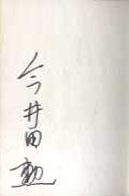 今井田勲